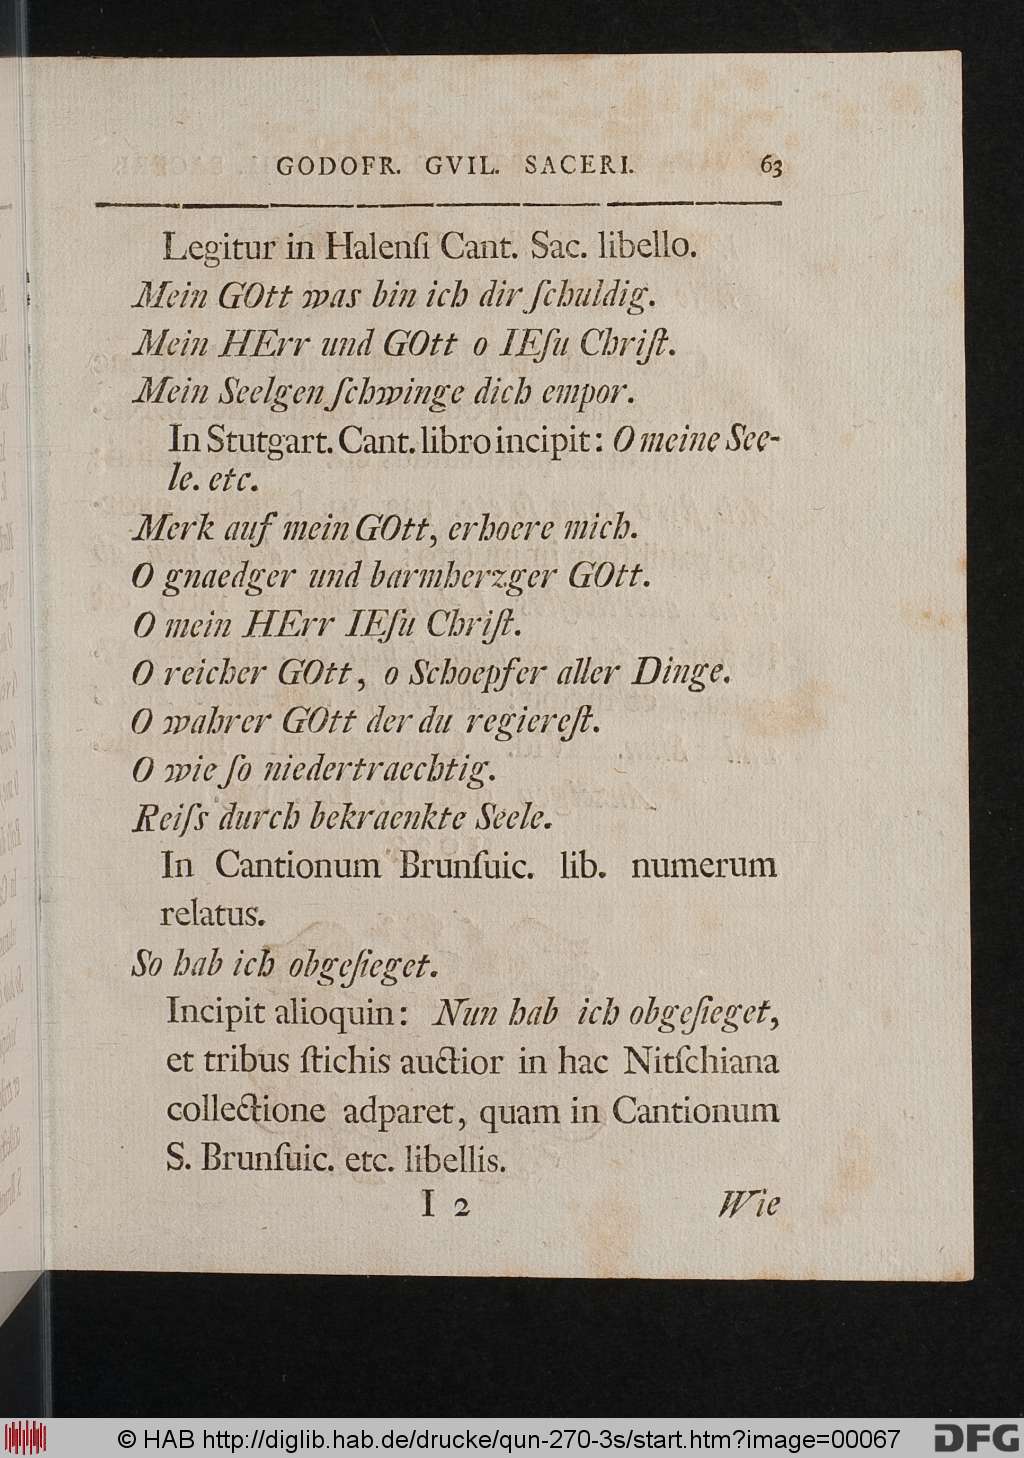 GODOFR. GVIL. SACERI. 63
Legitur in Halenſi Cant. Sac. libello.
Mein GOtt was bin ich dir ſchuldig.
Mein HErr und GOtt o IEſu Chriſt.
Mein Seelgen ſchwinge dich empor.
In Stutgart. Cant. libro incipit: O meine See-
le. etc.
Merk auf mein GOtt, erhoere mich.
O gnaedger und barmherzger GOtt.
O mein HErr IEſu Chriſt.
O reicher GOtt, o Schoepfer aller Dinge.
O wahrer GOtt der du regiereſt.
O wie ſo niedertraechtig.
Reiſs durch bekraenkte Seele.
In Cantionum Brunſuic. lib. numerum
relatus.
So hab ich obgeſieget.
Incipit alioquin: Nun hab ich obgeſieget,
et tribus ſtichis auctior in hac Nitſchiana
collectione adparet, quam in Cantionum
S. Brunſuic. etc. libellis.
I 2 Wie
© HAB http://diglib.hab.de/drucke/qun-270-3s/start.htm?image=00067
DFG